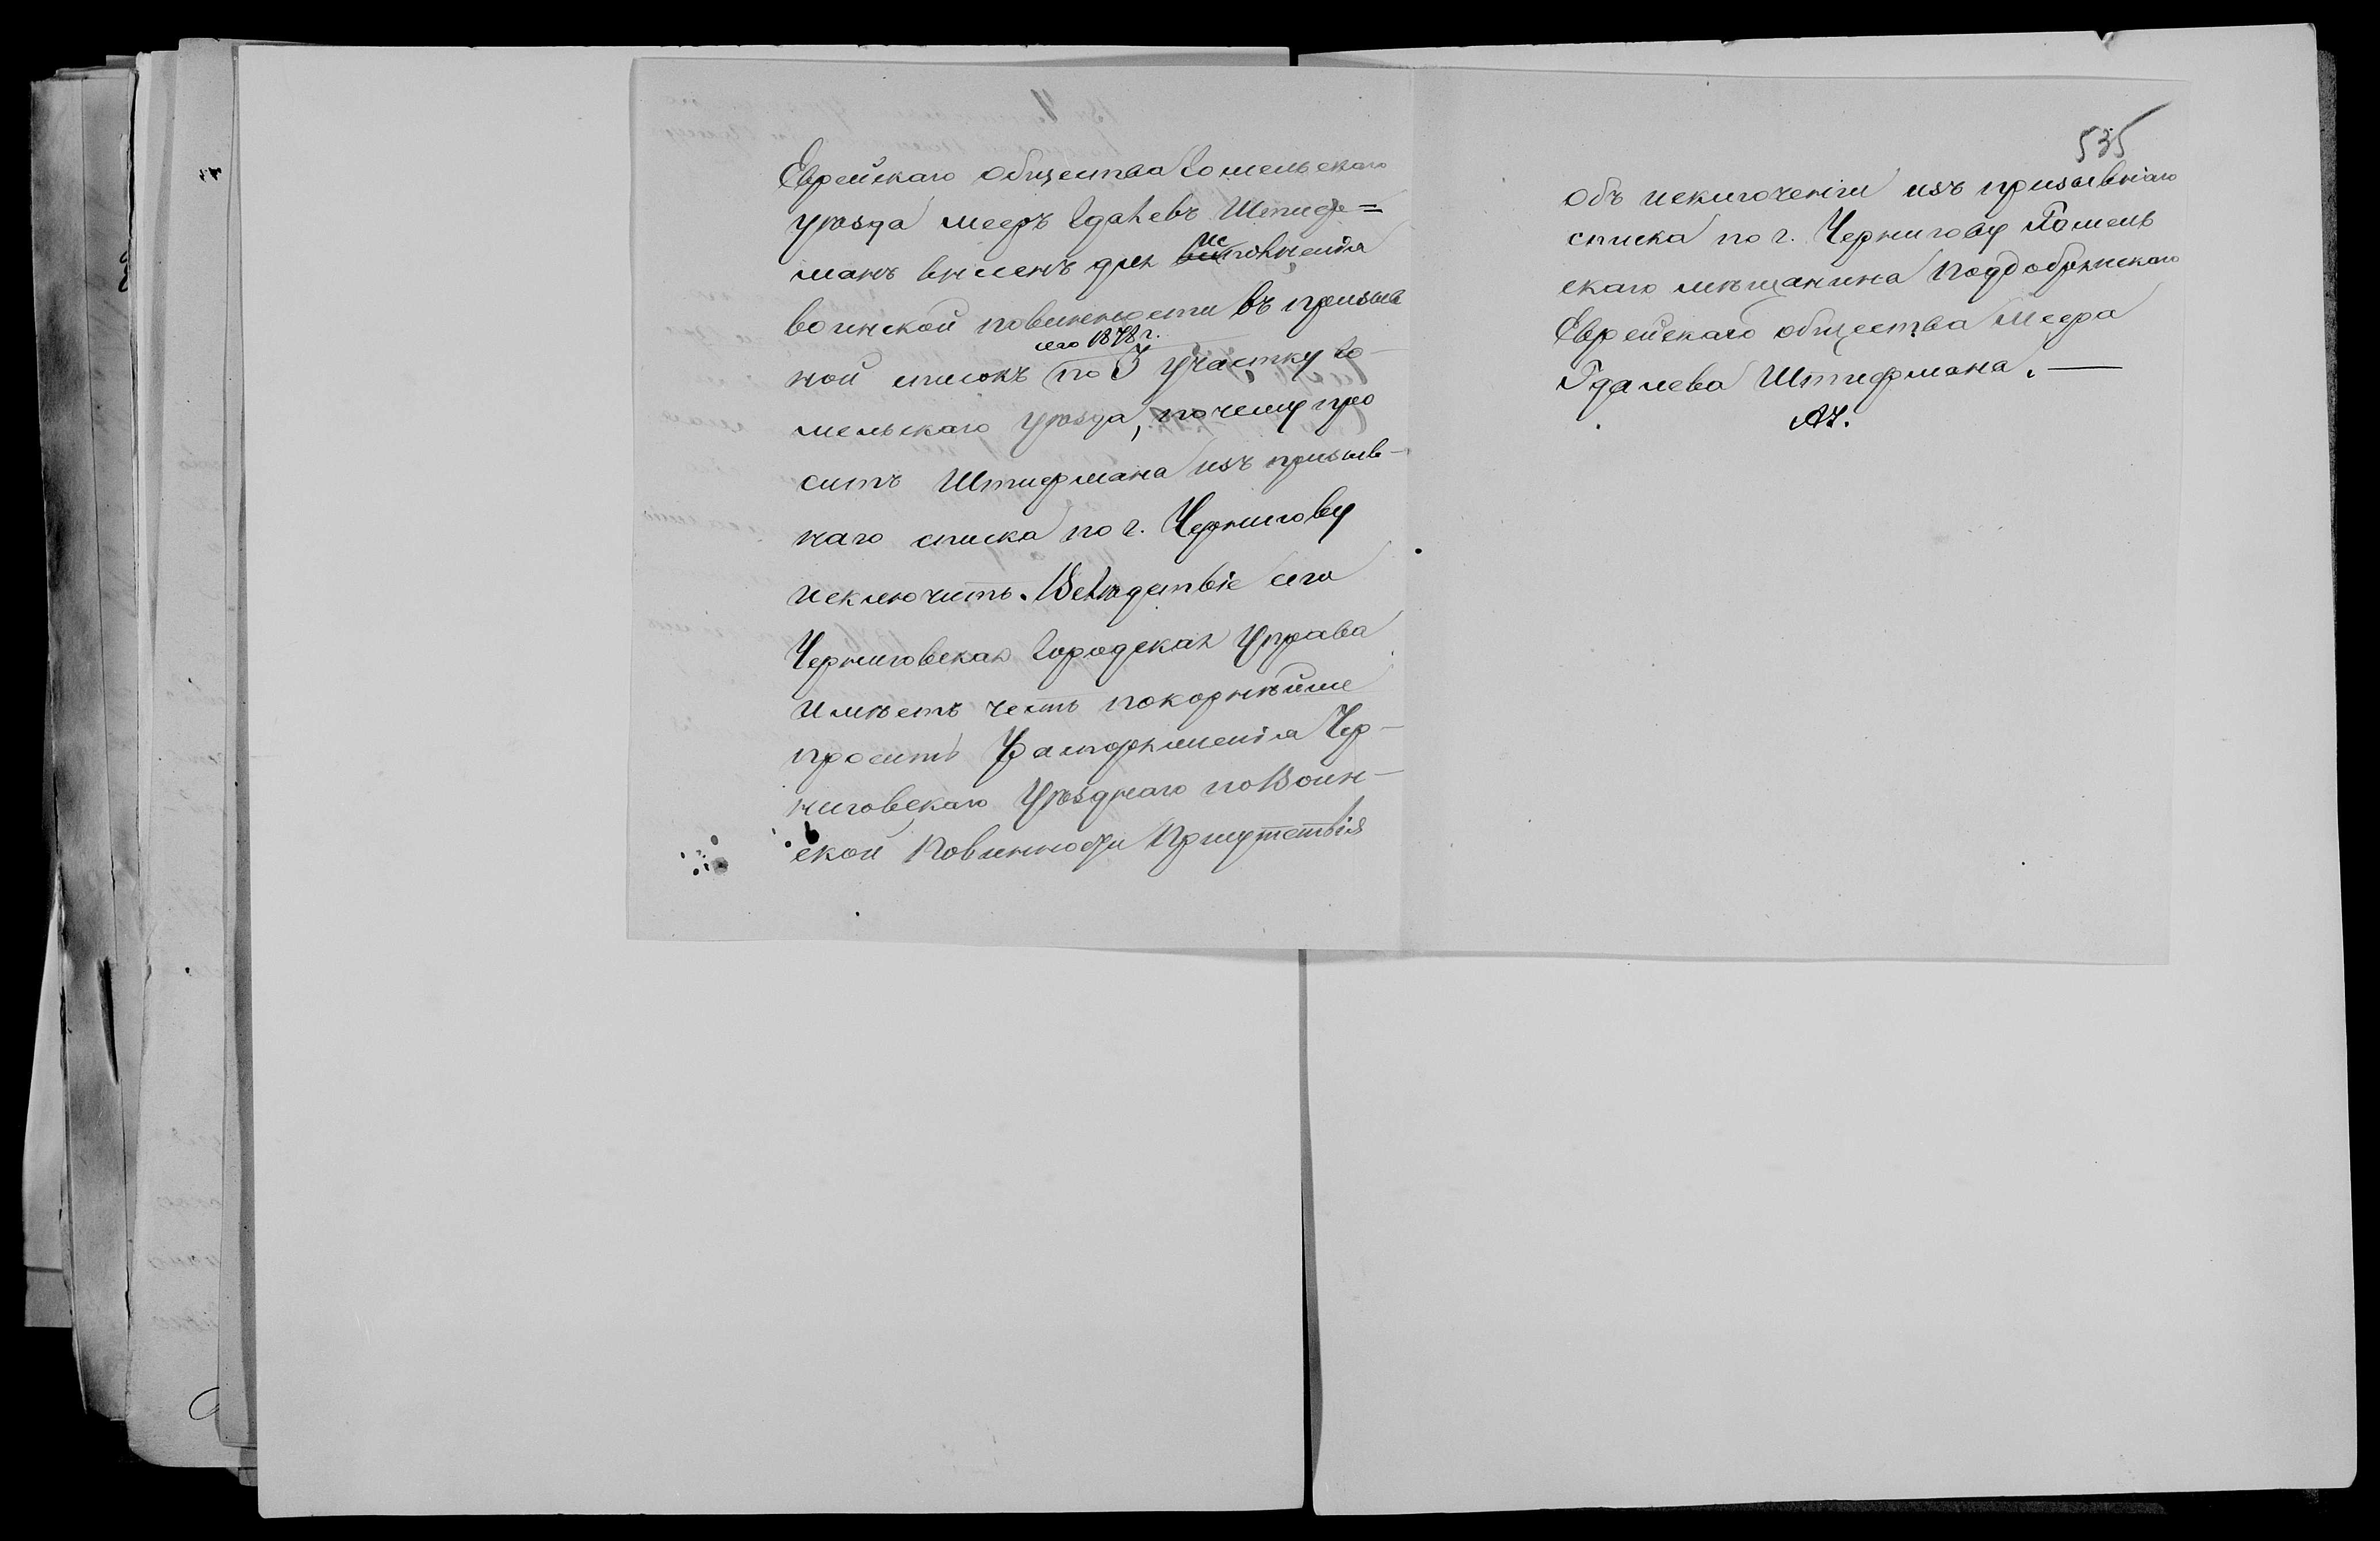 Еврейскаго общества Гомельскаго
уѣзда Мееръ Гдалевъ Штиф=
манъ внесенъ для исполненія
воинской повинности въ призыв
сего 1878 г.
ной списокъ по 3 участку Го-
мельскаго уѣзда, почему про
ситъ Штифмана изъ призыв-
наго списка по г. Чернигову
исключить. Вслѣдствіе сего
Черниговская Городская Управа
имѣетъ честь покорнѣйше
просить распоряженія Чер-
ниговскаго Уѣзднаго по Воин-
ской Повинности Присутствія
535
объ исключеніи изъ призывнаго
списка по г. Чернигову Гомель
скаго мѣщанина Поддобрянскаго
Еврейскаго общества Меера
Гдалева Штифмана. —